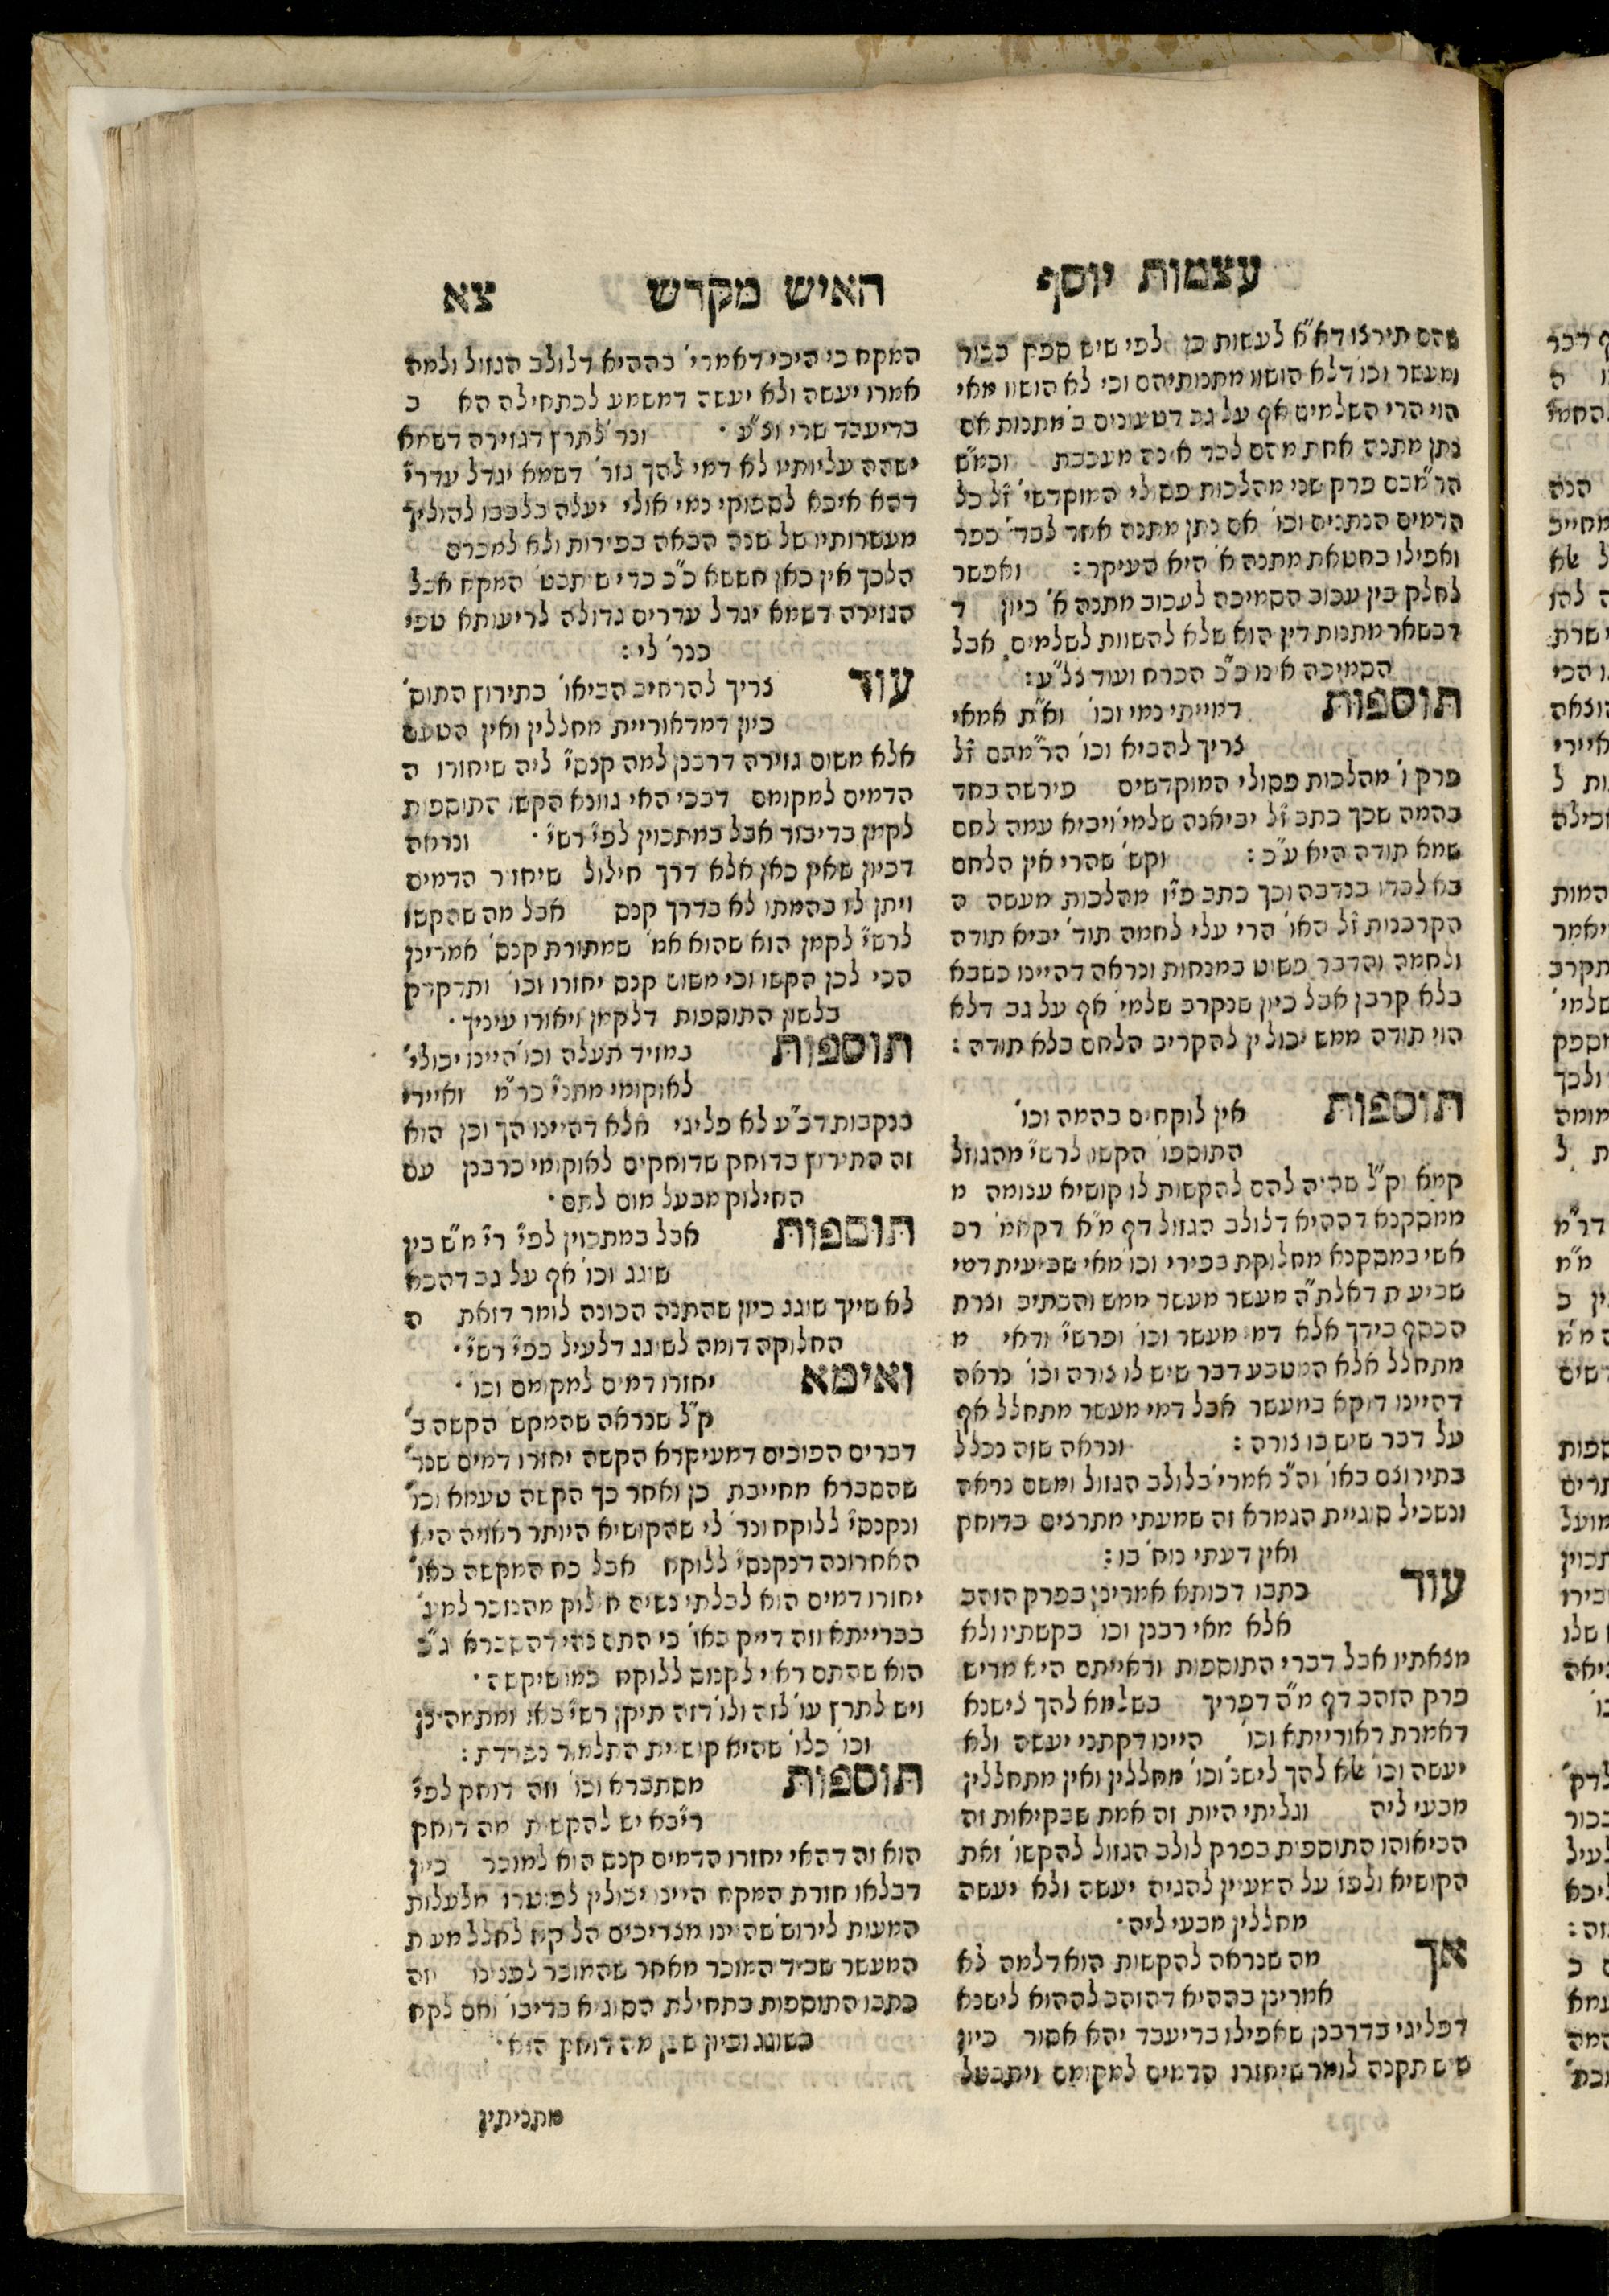 עצמות יוסף האיש מקדש צא
שהם תירצו דא"א לעשות כן לפי שיש ספק בכור
ומעשר וכו' דלא הושוו מתנותיהם וכי לא הושוו מאי
הוי הרי השלמים אף על גב דטעונים ב' מתנות אם
נתן מתנה אחת מהם לבד אינה מעכבת וכמ"ש
הר"מבם פרק שני מהלכות פסולי המוקדשי' ז"ל כל
הדמים הנתנים וכו' אם נתן מתנה אחד לבד' כפר
ואפילו בחטאת מתנה א' היא העיקר : ואפשר
לחלק בין עכוב הסמיכה לעכוב מתנה א' כיון ד
דבשאר מתנות דין הוא שלא להשוות לשלמים. אבל
הסמיכה אינו כ"כ הכרח ועוד צל"ע :
תוספות דמייתי נמי וכו' וא"ת אמאי
צריך להביא וכו' הר"מבם ז"ל
פרק ו' מהלכות פסולי המוקדשים פירשה בחד
בהמה שכך כתב ז"ל יביאנה שלמי' ויביא עמה לחם
שמא תודה היא ע"כ : וקש' שהרי אין הלחם
בא לבדו בנדבה וכך כתב פי"ו מהלכות מעשה ה
הקרבנות ז"ל האו' הרי עלי לחמה תוד' יביא תודה
ולחמה והדבר פשוט במנחות ונראה דהיינו כשבא
בלא קרבן אבל כיון שנקרב שלמי' אף על גב דלא
הוי תודה ממש יכולין להקריב הלחם בלא תודה :
תוספות אין לוקחים בהמה וכו'
התוספו' הקשו לרש"י מהגוזל
קמא וק"ל שהיה להם להקשות לו קושיא עצומה מ
ממסקנא דההיא דלולב הגזול דף מ"א דקאמ' רב
אשי במסקנא מחלוקת בפירי וכו' מאי שביעית דמי
שביעית דאלת"ה מעשר מעשר ממש והכתיב וצרת
הכסף בידך אלא דמי מעשר וכו' ופרש"י ודאי מ
מתחלל אלא המטבע דבר שיש לו צורה וכו' נראה
דהיינו דוקא במעשר אבל דמי מעשר מתחלל אף
על דבר שיש בו צורה : ונראה שזה נכלל
בתירוצם באו' וה"נ אמרי' בלולב הגזול ומשם נראה
ונשכיל סוגיית הגמרא זה שמעתי מתרצים בדוחק
ואין דעתי נוח' בו :
עוד כתבו דכותא אמרינן בפרק הזהב
אלא מאי רבנן וכו' בקשתיו ולא
מצאתיו אבל דברי התוספות וראייתם היא מריש
פרק הזהב דף מ"ה דפריך בשלמא להך לישנא
דאמרת דאורייתא וכו' היינו דקתני יעשה ולא
יעשה וכו' אלא להך לישנ' וכו' מחללין ואין מתחללין
מבעי ליה וגליתי היות זה אמת שבקיאות זה
הביאוהו התוספות בפרק לולב הגזול להקשו' זאת
הקושיא ולפ"ז על המעיין להגיה יעשה ולא יעשה
מחללין מבעי ליה.
אך מה שנראה להקשות הוא דלמה לא
אמרינן בההיא דהזהב לההוא לישנא
דפליגי בדרבנן שאפילו בדיעבד יהא אסור כיון
שיש תקנה לומר שיחזרו הדמים למקומם ויתבטל
המקח כי היכי דאמרי' בההיא דלולב הגזול ולמה
אמרו יעשה ולא יעשה דמשמע לכתחילה הא ב
בדיעבד שרי וצ"ע. ונר' לתרץ דגזירה דשמא
ישהה עליותיו לא דמי להך גזר' דשמא יגדל עדרי'
דהא איכא לספוקי נמי אולי יעלה בלבבו להוליך
מעשרותיו של שנה הבאה בפירות ולא למכרם
הלכך אין כאן חששא כ"כ כדי שיתבט' המקח אבל
הגזירה דשמא יגדל עדרים גדולה לריעותא טפי
כנר' לי :
עוד צריך להרחיב הביאו' בתירוץ התוס'
כיון דמדאוריית מחללין ואין הטעם
אלא משום גזירה דרבנן למה קנסי' ליה שיחזרו ה
הדמים למקומם דבכי האי גוונא הקשו התוספות
לקמן בדיבור אבל במתכוין לפי' רש"י. ונראה
דכיון שאין כאן אלא דרך חילול שיחזור הדמים
ויתן לו בהמתו לא בדרך קנס אבל מה שהקשו
לרש"י לקמן הוא שהוא אמ' שמתורת קנס' אמרינן
הכי לכן הקשו וכי משום קנס יחזרו וכו' ותדקדק
בלשון התוספות דלקמן ויאורו עיניך.
תוספות במזיד תעלה וכו' היינו יכולי'
לאוקומי מתני' כר"מ ואיירי
בנקבות דכ"ע לא פליגי אלא דהיינו הך וכן הוא
זה התירוץ בדוחק שדוחקים לאוקומי כרבנן עם
החילוק מבעל מום לתם.
תוספות אבל במתכוין לפי' ר"י מ"ש בין
שוגג וכו' אף על גב דהכא
לא שייך שוגג כיון שהתנה הכונה לומר דזאת ה
החלוקה דומה לשוגג דלעיל כפי' רש"י.
ואימא יחזרו דמים למקומם וכו'.
ק"ל שנראה שהמקש' הקשה ב'
דברים הפוכים דמעיקרא הקשה יחזרו דמים שנר'
שהסברא מחייבת כן ואחר כך הקשה טעמא וכו'
ונקנסי' ללוקח ונר' לי שהקושיא היותר ראויה היא
האחרונה דנקנסי' ללוקח אבל כח המקשה באו'
יחזרו דמים הוא לבלתי נשיה חילוק מהנזכר למע'
בברייתא וזה דייק באו' כי התם נהי דהסברא ג"כ
הוא שהתם ראוי לקנוס ללוקח כמו שיקשה.
ויש לתרץ עו' לזה ולו' דזה תיקן רש"י באו' ומתמה כן
וכו' כלו' שהיא קושיית התלמוד נפרדת :
תוספות מסתברא וכו' וזה דוחק לפי'
ריב"א יש להקשות מה דוחק
הוא זה דהאי יחזרו הדמים קנס הוא למוכר כיון
דבלאו חזרת המקח היינו יכולין לפוטרו מלעלות
המעות לירוש' שהיינו מצריכים הלוקח לחלל מעות
המעשר שביד המוכר מאחר שהמוכר לפנינו וזה
כתבו התוספות בתחילת הסוגיא בדיבו' ואם לקח
בשוגג וכיון שכן מה דוחק הוא.
מתניתין